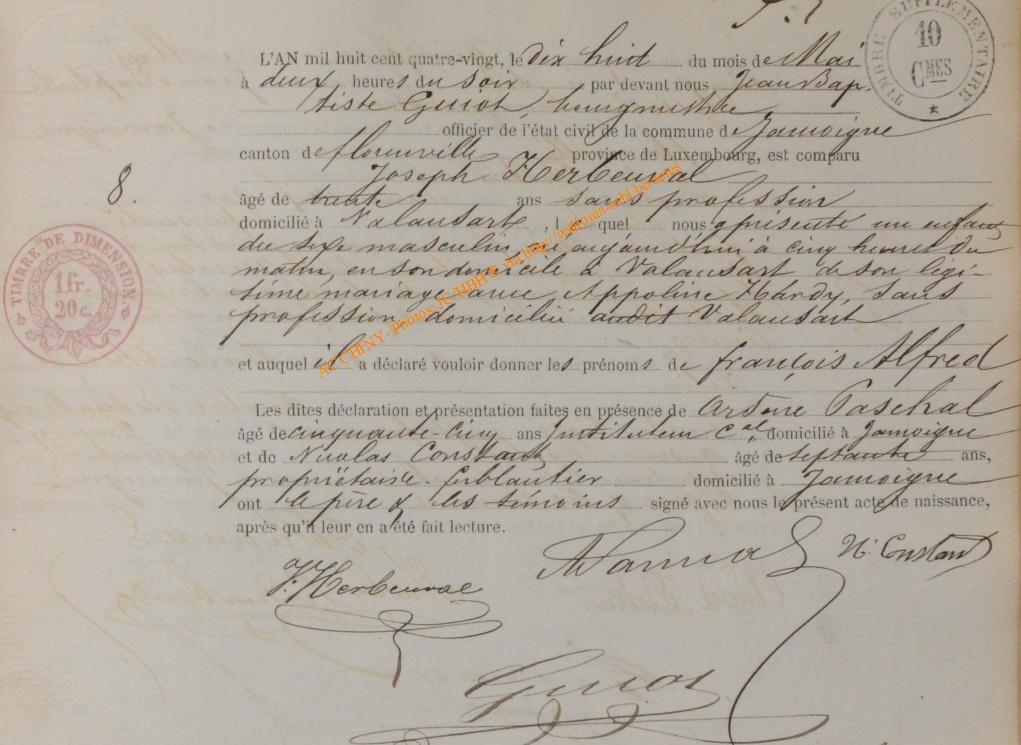 L'AN mil huit cent quatre-vingt, le dix huit du mois de Mai
à deux heures du soir par devant nous Jean Bap-
tiste Guiot, bourgmestre
officier de l'état civil de la commune de Jamoigne
canton de florenville province de Luxembourg, est comparu
Joseph Herbeuval
8.
âgé de trente ans sans profession
domicilié à Valansart, lequel nous a présenté un enfant
du sexe masculin, né aujourd'hui à cinq heures du
matin, en son domicile à Valansart de son légi-
time mariage avec Appoline Hardy, sans
profession domiciliée audit Valansart
et auquel il a déclaré vouloir donner les prénoms de françois Alfred
Les dites déclaration et présentation faites en présence de Arsène Paschal
âgé de cinquante-cinq ans Instituteur cal, domicilié à Jamoigne
et de Nicolas Constant âgé de septante ans,
propriétaire ferblantier domicilié à Jamoigne
ont le père & les témoins signé avec nous le présent acte de naissance,
après qu'il leur en a été fait lecture.
J. Herbeuval
N. Constant
Guiot
TIMBRE SUPPLEMENTAIRE
10
CMES
TIMBRE DE DIMENSION
1fr.
20c.
AE CHINY - Photos JC HBH